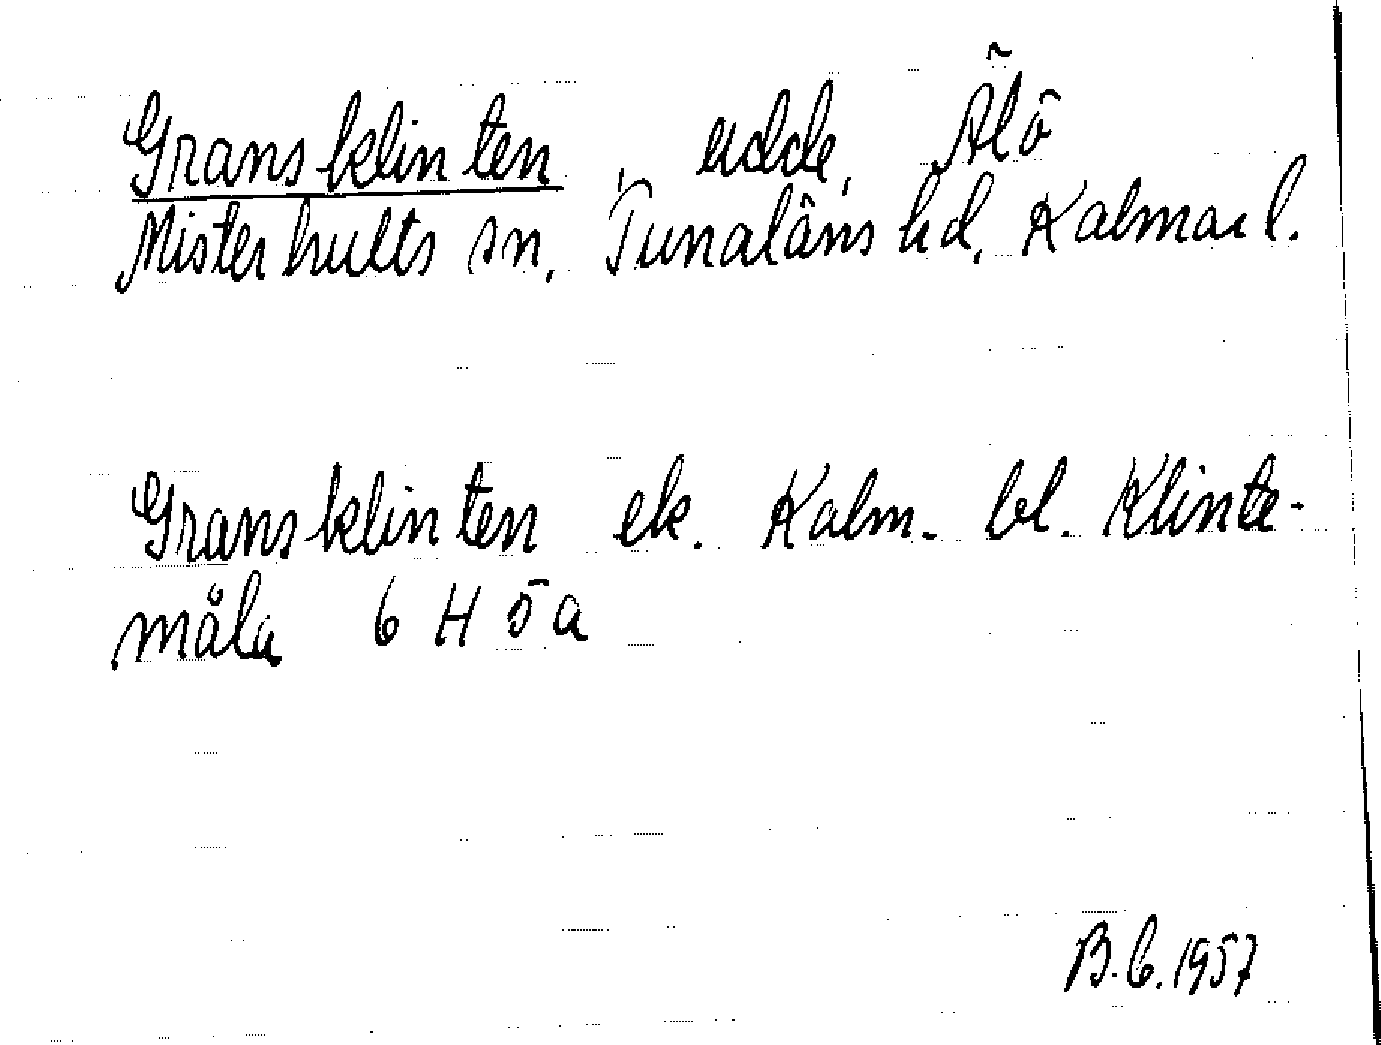 Gransklinten, udde, Älö
Misterhults sn, Tunaläns hd, Kalmar l.
Gransklinten ek. Kalm. bl. Klinte-
måla 6 H 5a
B.L. 1957